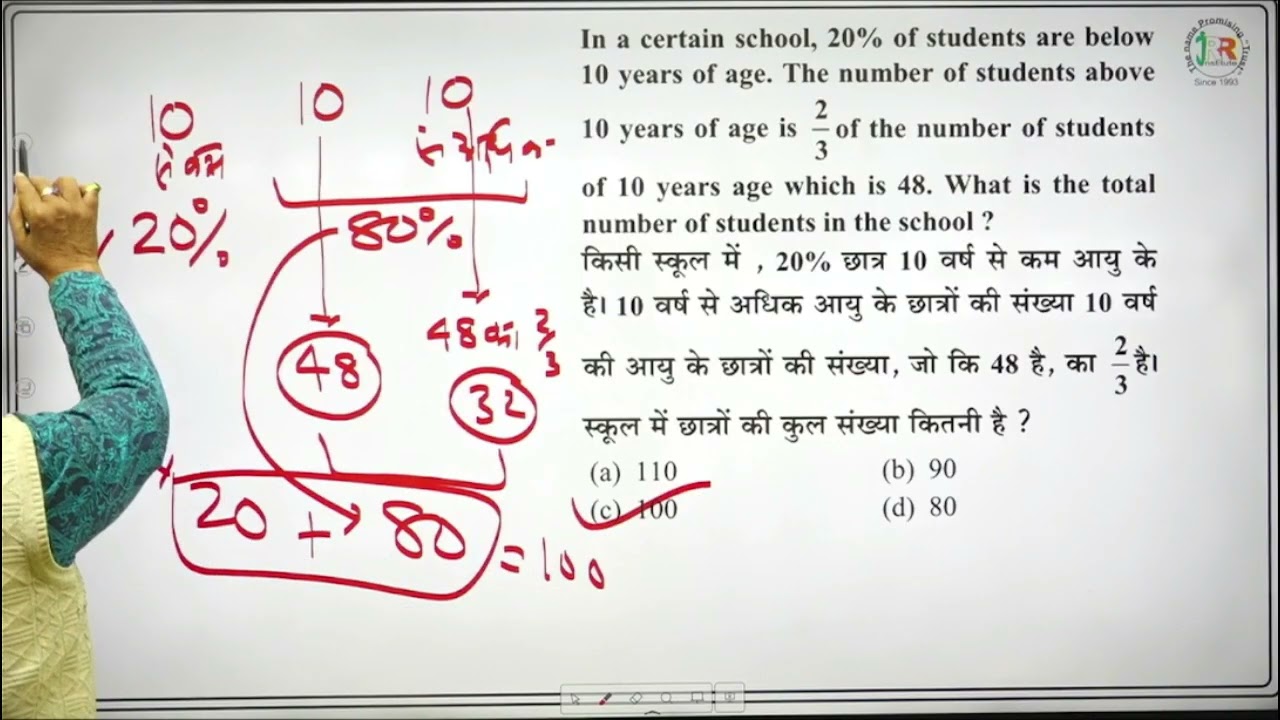 In a certain school, 20% of students are below
10 years of age. The number of students above
10 years of age is 2/3 of the number of students
of 10 years age which is 48. What is the total
number of students in the school ?
किसी स्कूल में , 20% छात्र 10 वर्ष से कम आयु के
है। 10 वर्ष से अधिक आयु के छात्रों की संख्या 10 वर्ष
की आयु के छात्रों की संख्या, जो कि 48 है, का 2/3 है।
स्कूल में छात्रों की कुल संख्या कितनी है ?
(a) 110 (b) 90
(c) 100 (d) 80
10 10 10
से कम से अधिक
20% 80%
48 48 का 2/3
32
20 + 80 = 100
The name Promising "Trust"
JRR
Institute
Since 1993